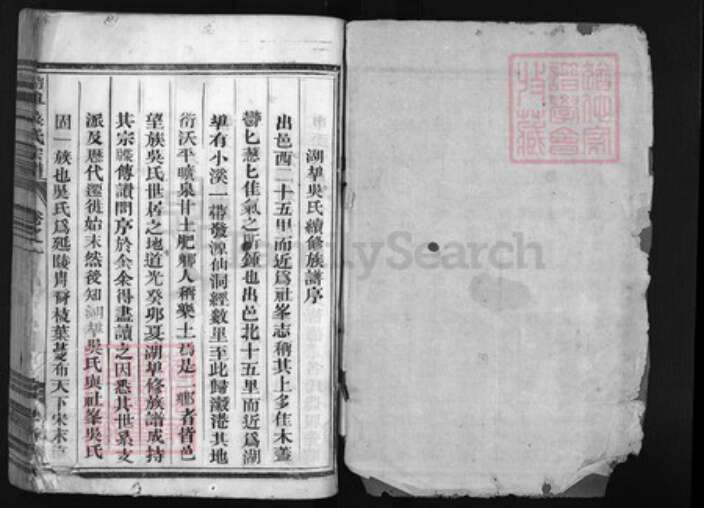 湖㘰吳氏續修族譜序
出邑西二十五里而近爲社峯志稱其上多佳木蓋
鬱匕葱匕佳氣之所鍾也出邑北十五里而近爲湖
㘰有小溪一帶發源仙洞經數里至此歸瀫港其地
衍沃平曠泉甘土肥鄉人稱樂土焉是二鄉者皆邑
望族吳氏世居之地道光癸卯夏湖㘰修族譜成持
其宗譜傳讚問序於余余得盡讀之因悉其世系支
派及歷代遷徙始末然後知湖㘰吳氏與社峯吳氏
固一族也吳氏爲延陵胄裔枝葉蔓布天下宋末
吳氏宗譜
卷之一
FamilySearch
譜學會
收藏